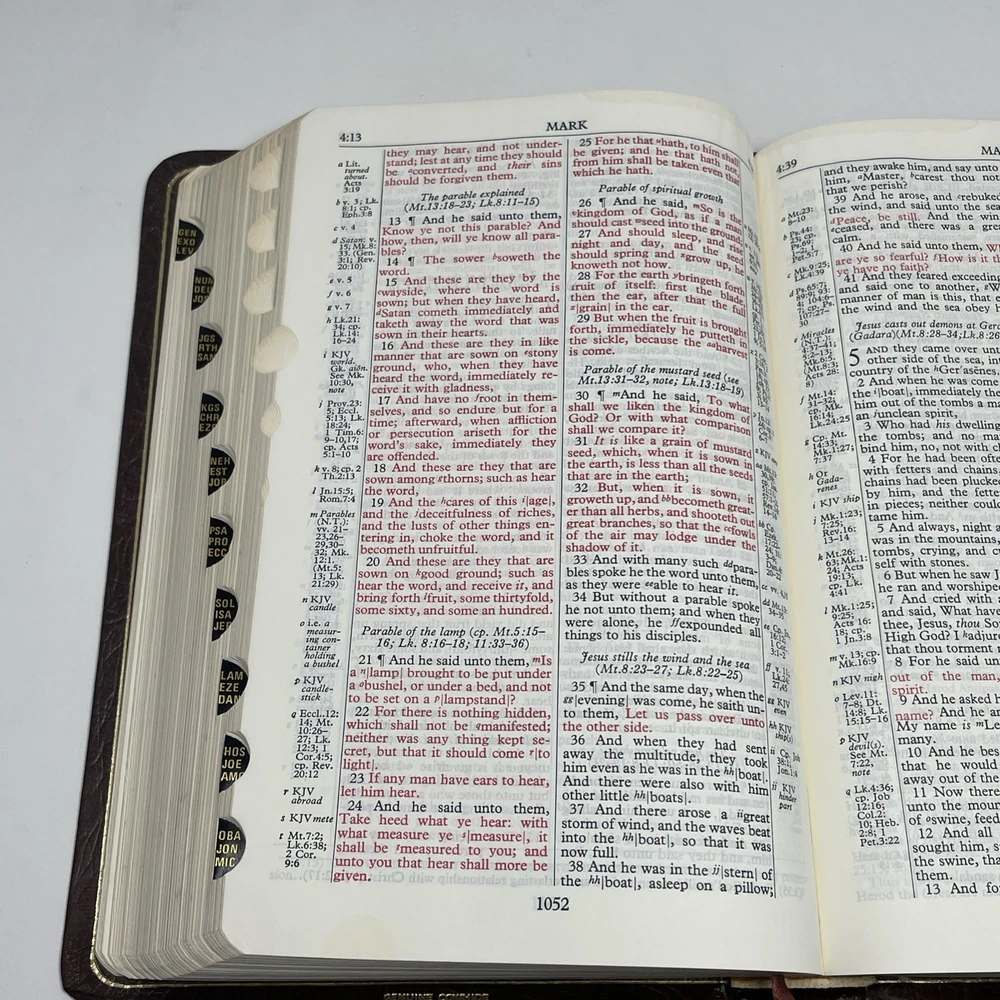 4:13
MARK
a Lit.
turned
about.
Acts
3:19
b v. 3; Lk.
8:1; cp.
Eph.3:8
c v. 4
d Satan: v.
15; Mk.8:
33. (Gen.
3:1; Rev.
20:10)
e v. 5
f v. 6
g v. 7
h Lk.21:
34; cp.
Lk.14:
16-24
i KJV
world.
Gk. aiōn.
See Mk.
10:30,
note
j Prov.23:
5; Eccl.
5:13; Lk.
18:24;
1 Tim.6:
9-10,17;
cp. Acts
5:1-10
k v. 8; cp. 2
Th.2:13
l Jn.15:5;
Rom.7:4
m Parables
(N.T.):
vv. 21-
23,26-
29,30-
32; Mk.
12:1.
(Mt.5:
13; Lk.
21:29)
n KJV
candle
o i.e. a
measur-
ing con-
tainer
holding
a bushel
p KJV
candle-
stick
q Eccl.12:
14; Mt.
10:26-
27; Lk.
12:3; 1
Cor.4:5;
cp. Rev.
20:12
r KJV
abroad
s KJV mete
t Mt.7:2;
Lk.6:38;
2 Cor.
9:6
they may hear, and not under-
stand; lest at any time they should
be aconverted, and their sins
should be forgiven them.
The parable explained
(Mt.13:18-23; Lk.8:11-15)
13 ¶ And he said unto them,
Know ye not this parable? And
how, then, will ye know all para-
bles?
14 ¶ The sower bsoweth the
word.
15 And these are they by the
cwayside, where the word is
sown; but when they have heard,
dSatan cometh immediately and
taketh away the word that was
sown in their hearts.
16 And these are they in like
manner that are sown on estony
ground, who, when they have
heard the word, immediately re-
ceive it with gladness,
17 And have no froot in them-
selves, and so endure but for a
time; afterward, when affliction
or persecution ariseth for the
word's sake, immediately they
are offended.
18 And these are they that are
sown among gthorns; such as hear
the word,
19 And the hcares of this i|age|,
and the jdeceitfulness of riches,
and the lusts of other things en-
tering in, choke the word, and it
becometh unfruitful.
20 And these are they that are
sown on kgood ground; such as
hear the word, and receive it, and
bring forth lfruit, some thirtyfold,
some sixty, and some an hundred.
Parable of the lamp (cp. Mt.5:15-
16; Lk. 8:16-18; 11:33-36)
21 ¶ And he said unto them, mIs
a n|lamp| brought to be put under
a obushel, or under a bed, and not
to be set on a p|lampstand|?
22 For there is nothing hidden,
which shall not be qmanifested;
neither was any thing kept se-
cret, but that it should come r|to
light|.
23 If any man have ears to hear,
let him hear.
24 And he said unto them,
Take heed what ye hear: with
what measure ye s|measure|, it
shall be tmeasured to you; and
unto you that hear shall more be
given.
25 For he that uhath, to him shall
be given; and he that hath not,
from him shall be taken even that
which he hath.
Parable of spiritual growth
26 ¶ And he said, So is the
kingdom of God, as if a man
should cast seed into the ground,
27 And should sleep, and rise
night and day, and the seed
should spring and grow up, he
knoweth not how.
28 For the earth bringeth forth
fruit of itself: first the blade,
then the ear, after that the full
|grain| in the ear.
29 But when the fruit is brought
forth, immediately he putteth in
the sickle, because the aaharvest
is come.
Parable of the mustard seed (see
Mt.13:31-32, note; Lk.13:18-19)
30 ¶ mAnd he said, To what
shall we liken the kingdom of
God? Or with what comparison
shall we compare it?
31 It is like a grain of mustard
seed, which, when it is sown in
the earth, is less than all the seeds
that are in the earth;
32 But, when it is sown, it
groweth up, and bbbecometh great-
er than all herbs, and shooteth out
great branches, so that the ccfowls
of the air may lodge under the
shadow of it.
33 And with many such ddpara-
bles spoke he the word unto them,
as they were eeable to hear it.
34 But without a parable spoke
he not unto them; and when they
were alone, he ffexpounded all
things to his disciples.
Jesus stills the wind and the sea
(Mt.8:23-27; Lk.8:22-25)
35 ¶ And the same day, when the
gg|evening| was come, he saith un-
to them, Let us pass over unto
the other side.
36 And when they had sent
away the multitude, they took
him even as he was in the hh|boat|.
And there were also with him
other little hh|boats|.
37 And there arose a iigreat
storm of wind, and the waves beat
into the hh|boat|, so that it was
now full.
38 And he was in the jj|stern| of
the hh|boat|, asleep on a pillow;
1052
4:39
and they awake him, and say
him, aMaster, bcarest thou not
that we perish?
39 And he arose, and crebuked
the wind, and said unto the sea
dPeace, be still. And the wind
eceased, and there was a great
calm.
40 And he said unto them,
are ye so fearful? fHow is it
ye have no faith?
41 And they feared exceeding
and said one to another,
manner of man is this, that
the wind and the sea obey
Jesus casts out demons at
(Gadara)(Mt.8:28-34;Lk.8:26
5 AND they came over unto
other side of the sea, in
country of the hGer'asēnes.
2 And when he was come
the i|boat|, immediately
him out of the tombs a m
an junclean spirit,
3 Who had his dwelling
the tombs; and no man
bind him, no, not with ch
4 For he had been often
with fetters and chains,
chains had been plucked
by him, and the fetters
in pieces; neither could
tame him.
5 And always, night a
was in the mountains,
tombs, crying, and c
self with stones.
6 But when he saw J
he ran and worshiped
7 And cried with
and said, What have
thee, Jesus, thou Son
High God? I kadjur
that thou torment
8 For he said un
out of the man,
spirit.
9 And he asked
name? And he an
My name is mLe
many.
10 And he bes
that he would
away out of the
11 Now there
unto the moun
of oswine, feed
12 And all
sought him, s
the swine, tha
them.
13 And fo
GEN
EXO
LEV
NUM
DEU
JOS
JGS
RTH
SAM
KGS
CHR
EZR
NEH
EST
JOB
PSA
PRO
ECC
SOL
ISA
JER
LAM
EZE
DAN
HOS
JOE
AMO
OBA
JON
MIC